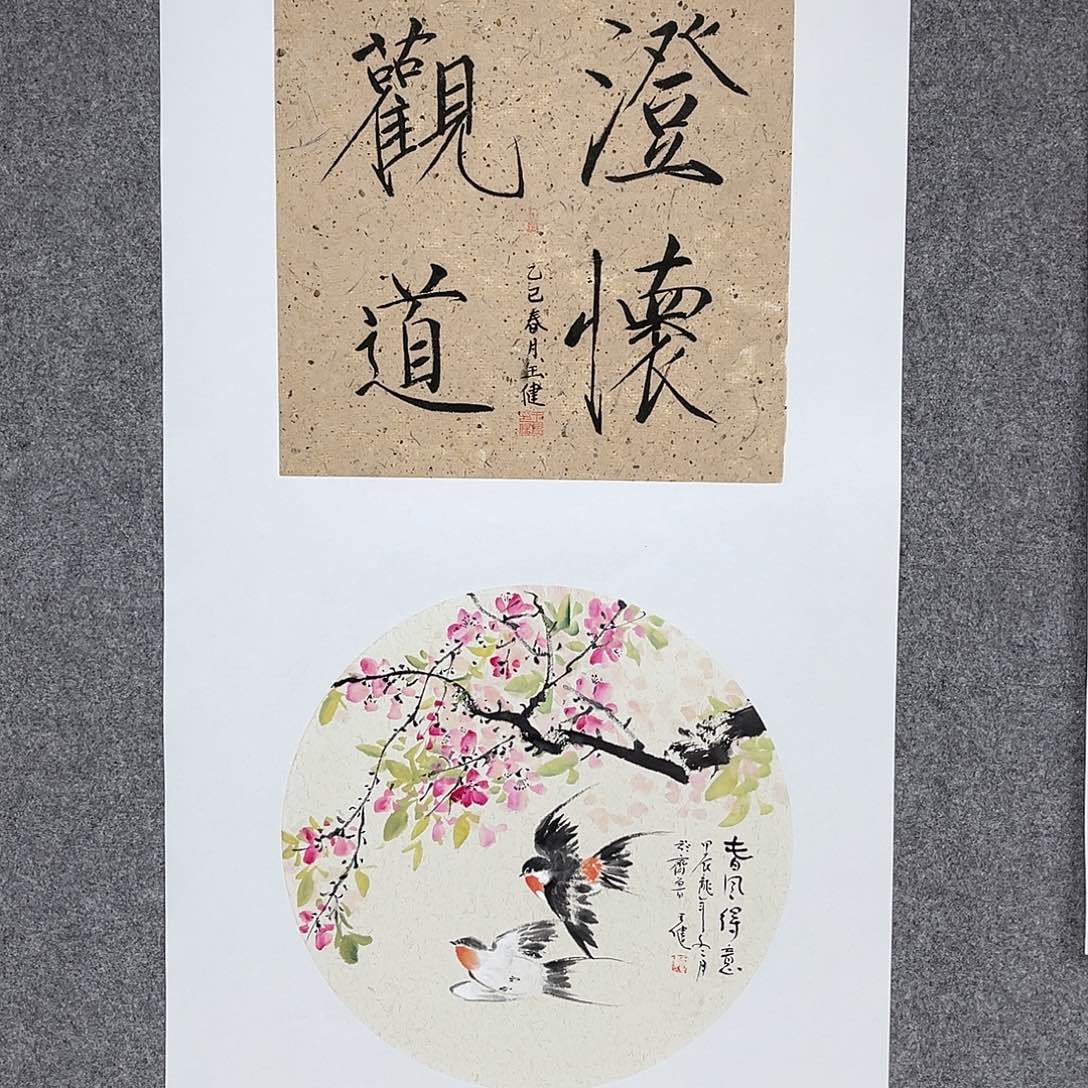 澄懷
觀道
乙巳春月王健
春風得意
甲辰龍年
於齊魯王健